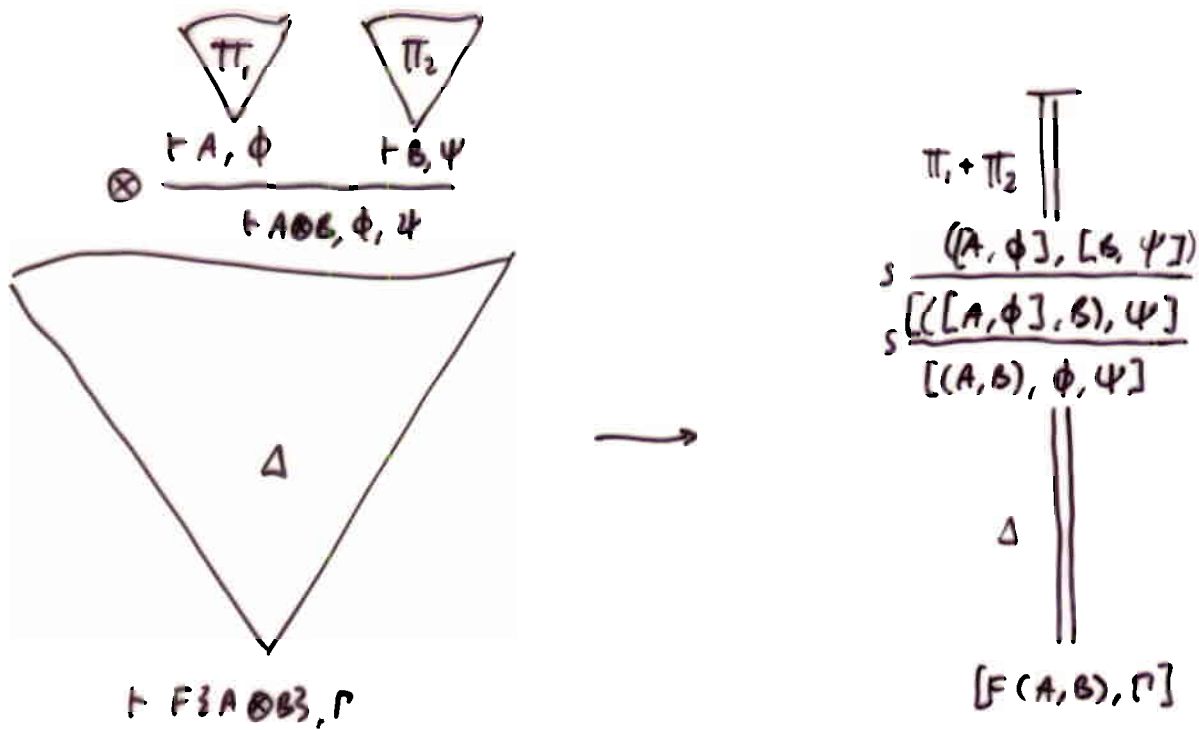 Π₁ Π₂
⊢ A, ϕ ⊢ B, ψ
⊗
⊢ A⊗B, ϕ, ψ
Δ
⊢ F{A⊗B}, Γ
Π₁ + Π₂
([A, ϕ], [B, ψ])
S
[([A, ϕ], B), ψ]
S
[(A, B), ϕ, ψ]
Δ
[F(A, B), Γ]